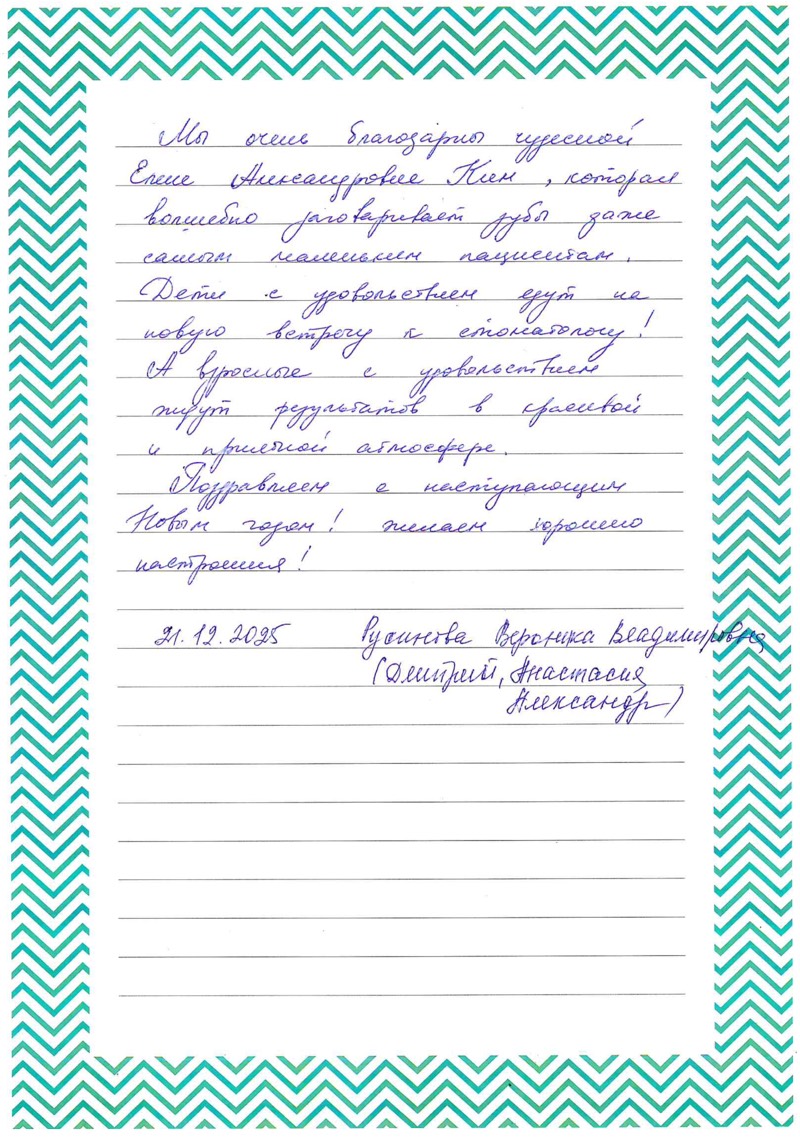 Мы очень благодарны чудесной
Елене Александровне Кин, которая
волшебно заговаривает зубы даже
самым маленьким пациентам.
Дети с удовольствием едут на
новую встречу к стоматологу!
А взрослые с удовольствием
ждут результатов в красивой
и приятной атмосфере.
Поздравляем с наступающим
Новым годом! желаем хорошего
настроения!
21.12.2025 Вероника Владимировна
(Дмитрий, Анастасия
Александр)